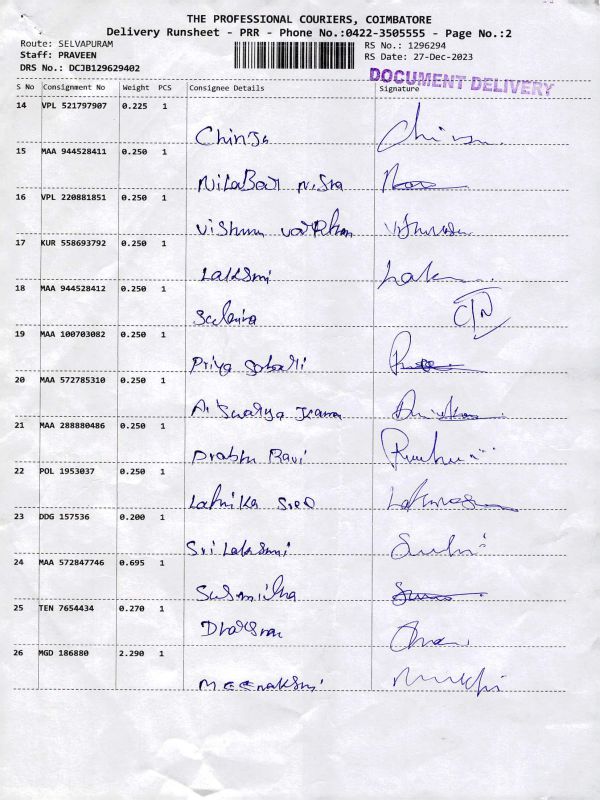 THE PROFESSIONAL COURIERS, COIMBATORE
Delivery Runsheet - PRR - Phone No.:0422-3505555 - Page No.:2
Route: SELVAPURAM
RS No.: 1296294
Staff: PRAVEEN
RS Date: 27-Dec-2023
DRS No.: DCJB129629402
DOCUMENT DELIVERY
S No Consignment No Weight PCS Consignee Details Signature
14 VPL 521797907 0.225 1
15 MAA 944528411 0.250 1
16 VPL 220881851 0.250 1
Vishnu
17 KUR 558693792 0.250 1
Laksmi
18 MAA 944528412 0.250 1
C/N
19 MAA 100703082 0.250 1
Priya
20 MAA 572785310 0.250 1
21 MAA 288880486 0.250 1
Prabhu Ravi
22 POL 1953037 0.250 1
23 DDG 157536 0.200 1
Sri Laksmi
24 MAA 572847746 0.695 1
Susmitha
25 TEN 7654434 0.270 1
26 MGD 186880 2.290 1
Meenaksmi